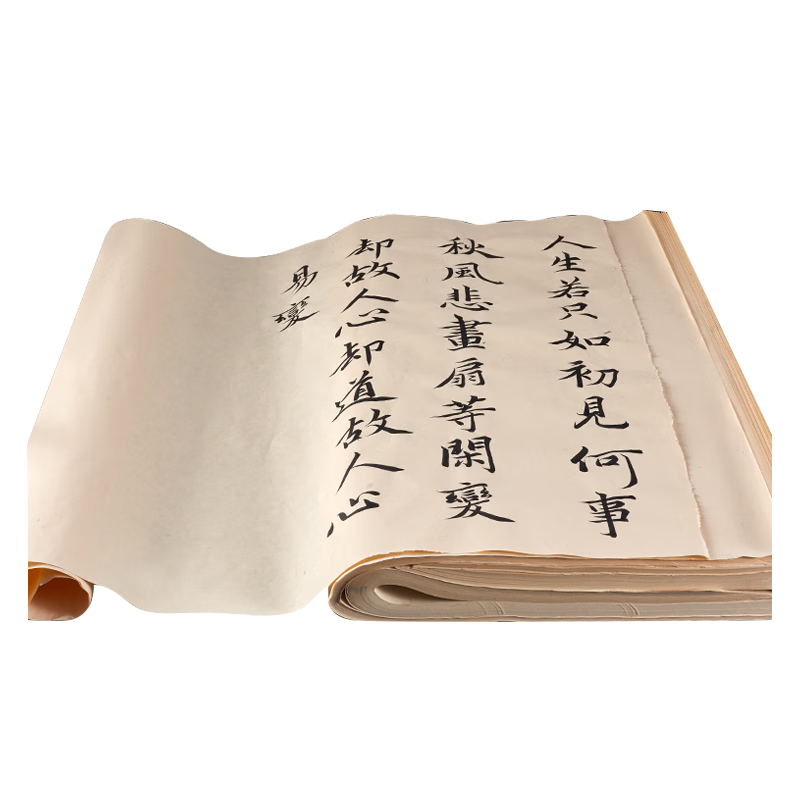 人生若只如初見何事
秋風悲畫扇等閑變
却故人心却道故人心
易變